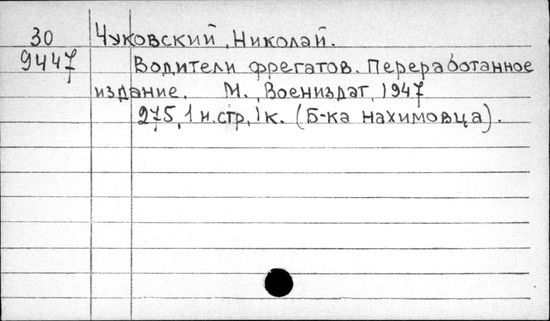 30 Чуковский, Николай.
9447 Водители фрегатов. Переработанное
издание. М., Воениздат, 1947
275, 1 н. стр, 1 к. (Б-ка нахимовца).